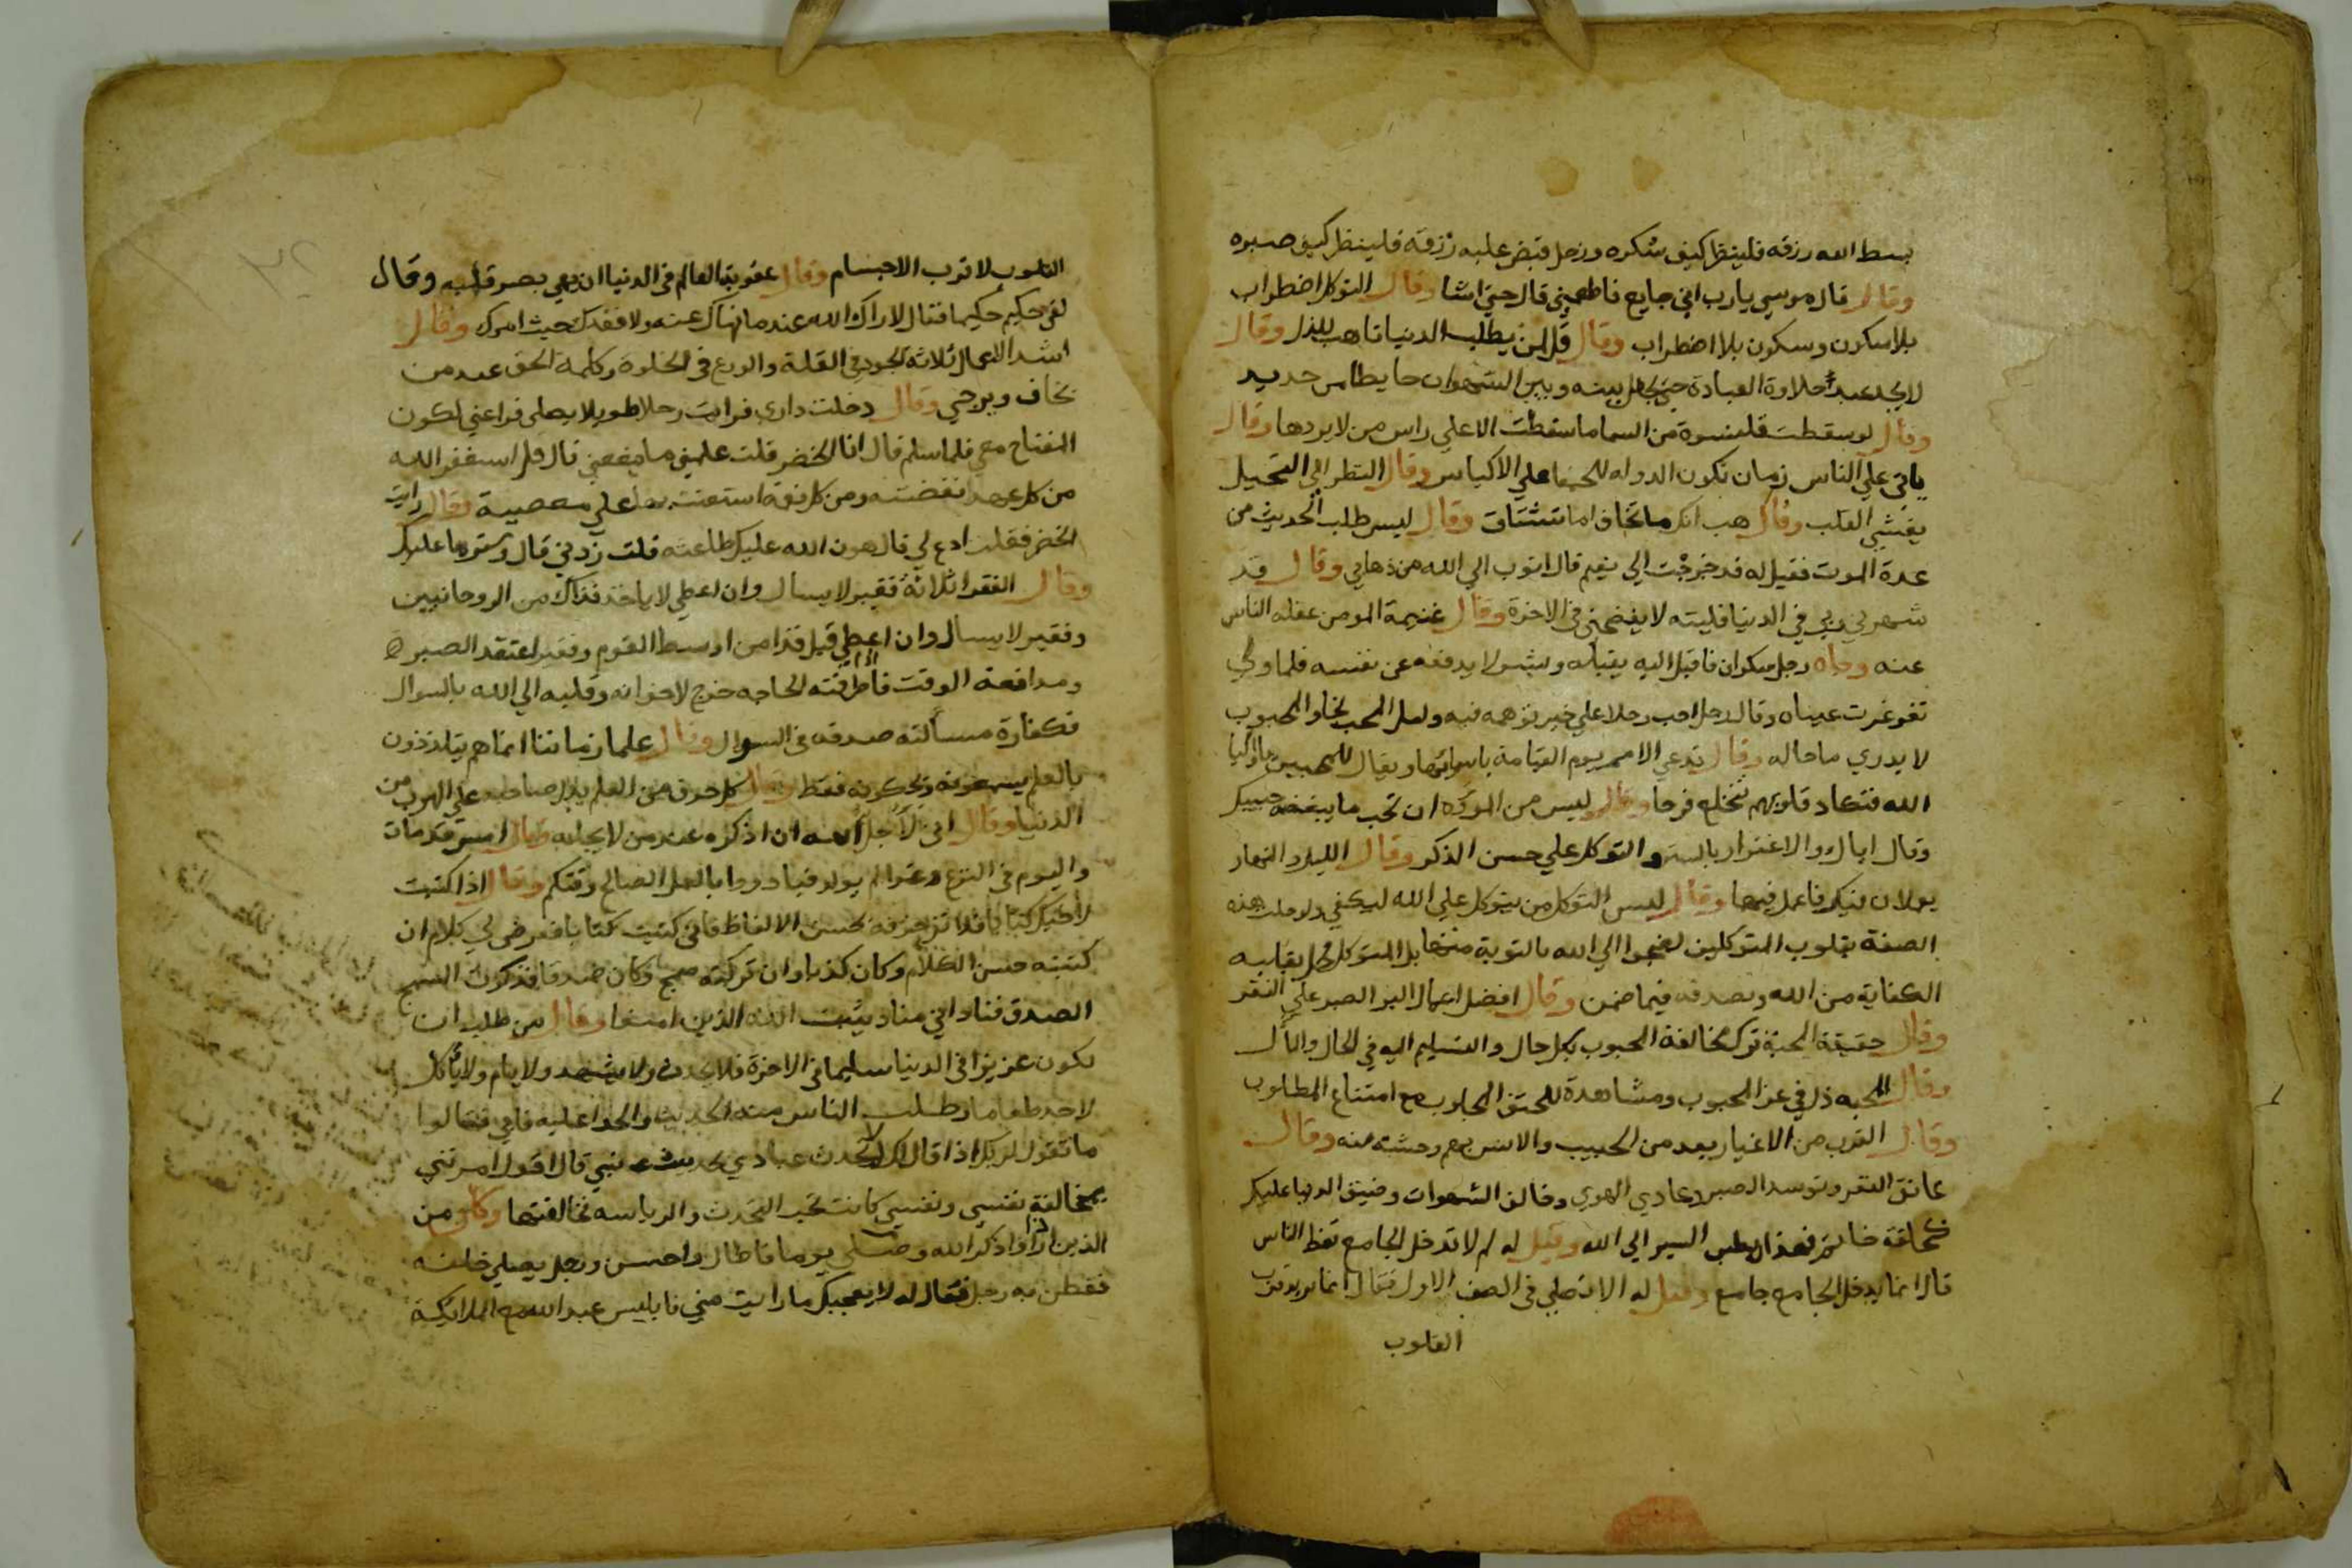 بسط الله رزقه فلينظر كيف شكره ورجل قبض عليه رزقه فلينظر كيف صبره
وقال قال موسى يارب اني جايع فاطعمني قال حتي اشا وقال التوكل اضطراب
بلا سكون وسكون بلا اضطراب وقال قل لمن يطلب الدنيا تاهب للذل وقال
لا يجد عبد حلاوة العبادة حتي يجعل بينه وبين الشهوات حايطا من حديد
وقال لو سقطت قلنسوة من السما ما سقطت الا علي راس من لا يريدها وقال
ياتي علي الناس زمان تكون الدولة للحمقا علي الاكياس وقال النظر الي البخيل
يقسي القلب وقال هب انك ما تخاف اما تشتاق وقال ليس طلب الحديث من
عدة الموت فقيل له قد خرجت الي نعيم قال اتوب الي الله من ذهابي وقال قد
شهرني ربي في الدنيا فليته لا يفضحني في الاخرة وقال غنيمة المومن غفلة الناس
عنه وجاه رجل سكران فاقبل اليه يقبله وبشر لا يدفعه عن نفسه فلما ولي
تغرغرت عيناه وقال رجل احب رجلا علي خير توهمه فيه ولعل المحب نجا والمحبوب
لا يدري ما حاله وقال تدعي الامم يوم القيامة بانبيائها ويقال للمحبين يا اوليا
الله فتكاد قلوبهم تنخلع فرحا وقال ليس من المودة ان تحب ما يبغضه حبيبك
وقال اياك والاغترار بالستر والتوكل علي حسن الذكر وقال الليل والنهار
يعملان فيك فاعمل فيهما وقال ليس المتوكل من يتوكل علي الله ليكفي ولو حلت هذه
الصفة بقلوب المتوكلين لضجوا الي الله بالتوبة منها بل المتوكل يحل بقلبه
الكفاية من الله ويصدقه فيما ضمن وقال افضل اعمال البر الصبر علي الفقر
وقال حقيقة المحبة ترك مخالفة المحبوب بكل حال والتسليم اليه في الحال والمآل
وقال المحبة ذل في عز المحبوب ومشاهدة للحق المحبوب مع امتناع المطلوب
وقال القرب من الاغيار بعد من الحبيب والانس بهم وحشة منه وقال
عانق الفقر وتوسد الصبر وعادي الهوي وخالف الشهوات وضيق الدنيا عليك
السير الي الله وقيل له لم لا تدخل الجامع تعظ الناس
قال انما يدخل الجامع جامع وقيل له الا تصلي في الصف الاول فقال انما يريد قرب
القلوب
القلوب لا قرب الاجسام وقال عقوبة العالم في الدنيا ان يعمي بصر قلبه وقال
لقي حكيم حكيما فقال لا اراك الله عند ما نهاك عنه ولا فقدك حيث امرك وقال
اشد الاعمال ثلاثة الجود في القلة والورع في الخلوة وكلمة الحق عند من
يخاف ويرجي وقال دخلت داري فرايت رجلا طويلا يصلي فراعني لكون
المفتاح معي فلما سلم قال انا الخضر قلت علمني ما ينفعني قال قل استغفر الله
من كل عهد نقضته ومن كل نعمة استعنت بها علي معصية وقال رايت
الخضر فقلت ادع لي قال هون الله عليك طاعته قلت زدني قال وسترها عليك
وقال الفقرا ثلاثة فقير لا يسال وان اعطي لا ياخذ فذاك من الروحانيين
وفقير لا يسال وان اعطي قبل فذا من اوسط القوم وفقير اعتقد الصبر
ومدافعة الوقت فاذا طرقته الحاجه خرج لاخوانه وقلبه الي الله بالسوال
فكفارة مسالته صدقه في السوال وقال علما زماننا انما هم يتلذذون
بالعلم يسمعونه ويحكونه فقط وقال كل حرف من العلم يدل صاحبه علي الهرب من
الدنيا وقال اني لاجل الله ان اذكره عند من لا يجله وقال امس قد مات
واليوم في النزع وغدا لم يولد فبادروا بالعمل الصالح وقتكم وقال اذا كتبت
لاخيك كتابا فلا تزخرفه بحسن الالفاظ فاني كتبت كتابا فعرض لي كلام ان
كتبته حسن الكلام وكان كذبا وان تركته سمج وكان صدقا فذكرت السمج
الصدق فناداني مناد يثبت الله الذين امنوا وقال من طلب ان
يكون عزيزا في الدنيا سليما في الاخرة فلا يحدث ولا يشهد ولا يام ولا ياكل
لاحد طعاما وطلب الناس منه الحديث والحوا عليه فابي فقالوا
ما تقول لربك اذا قال لك لم لا تحدث عبادي بحديث نبي قال اقول امرتني
بمخالفة نفسي ونفسي كانت تحب التحدث والرياسه فخالفتها وكان من
الذين اذا ذكر الله وصلي يوما فاطال واحسن ورجل يصلي خلفه
ففطن به رجل فقال له لا يعجبك ما رايت مني فابليس عبد الله مع الملائكة